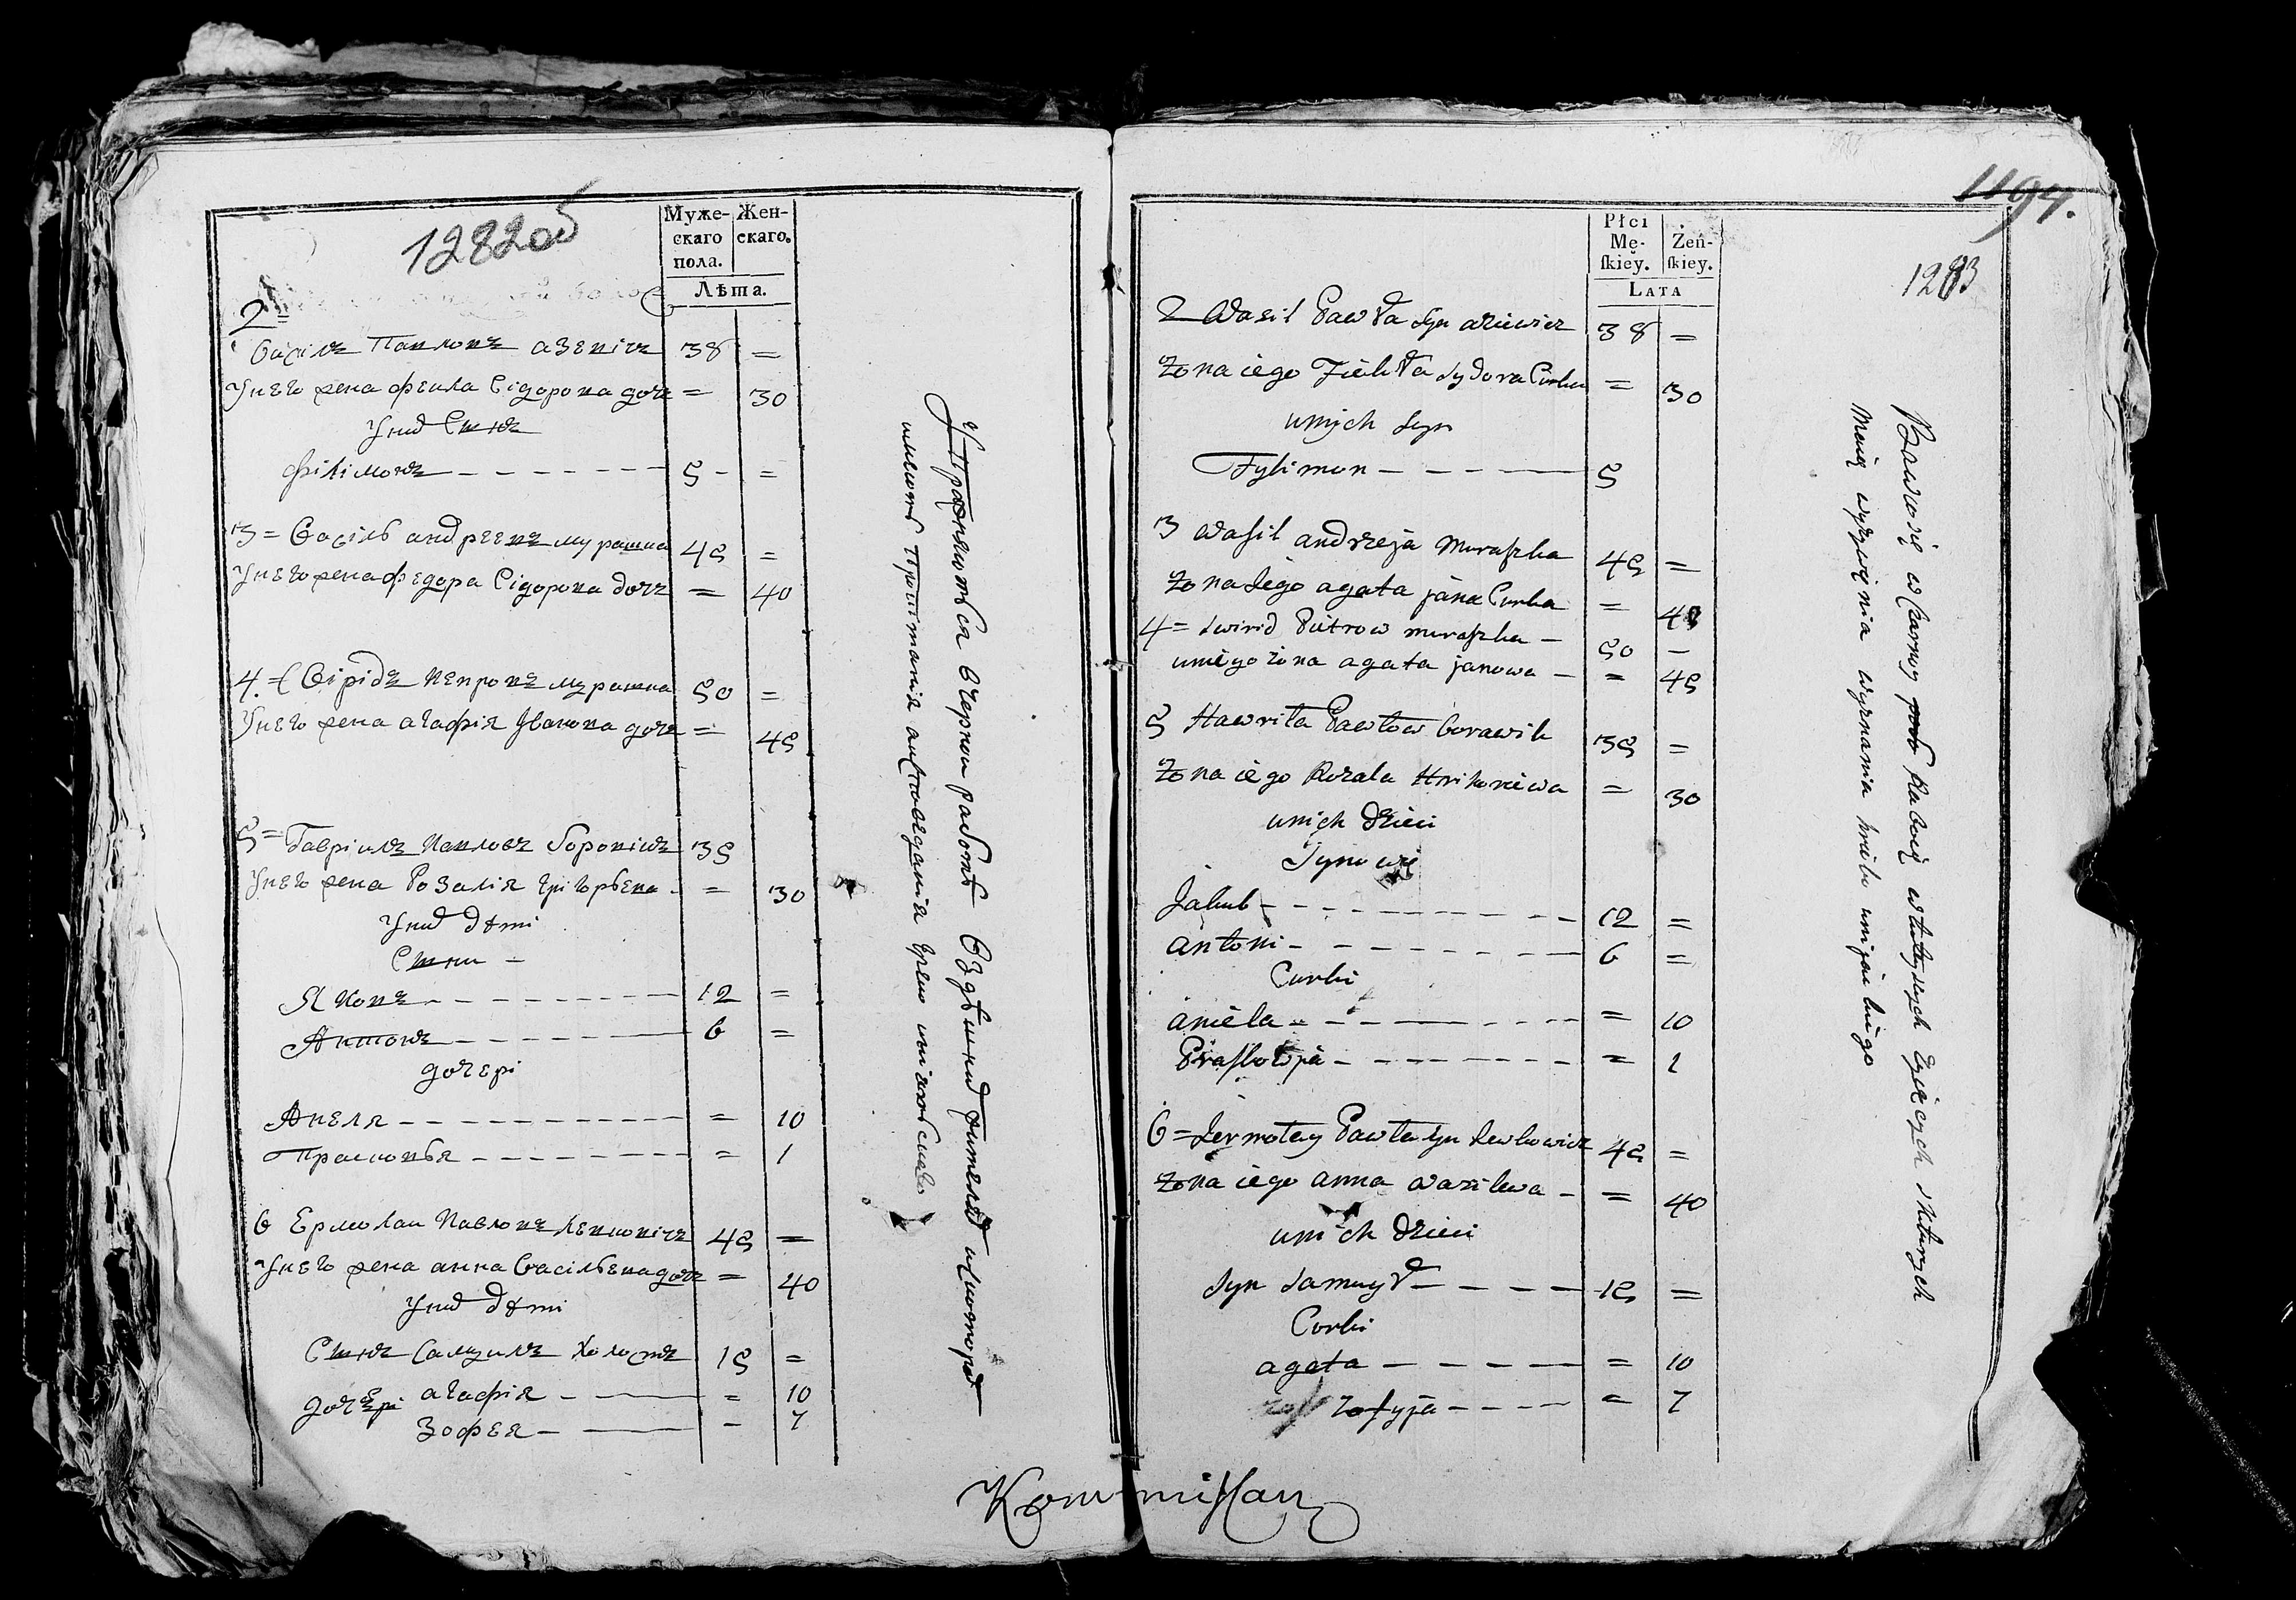 1282об
Муже-
скаго
пола.
Жен-
скаго.
Лѣта.
2=
Василъ Павловъ азевичъ 38 =
Унего жена феила Сідорова дочъ = 30
Уних Сынъ
філімонъ 5 - =
3 = Василь андреевъ мурашка 45 =
Унего жена федора Сідорова дочъ = 40
4. = Свірідъ Петровъ мурашка 50 =
Унего жена агафія Іванова дочъ = 45
5 = Гавріилъ Павловъ боровікъ 35
Унего жена Розалія Грігорьева - = 30
Уних дѣти
Сыни -
Яковъ 12 =
Антонъ 6 =
дочері
Анеля = 10
Прасковья = 1
6 Ермолаи Павловъ Левковічъ 45 =
Унего жена анна Васільева дочъ = 40
Уних дѣти
Сынъ Самуилъ Холостъ 15 =
дочері агафія = 10
Зофея - 7
Упражняются вчернои работѣ Вздѣшних жителях икоторые
имеютъ Пропитанія
Płci
Mę-
ſkiey.
Żeń-
ſkiey.
LATA
1194.
1283
2 Wasil Pawła syn aziewicz 38 =
żona iego Fiekła Sydora Curka = 30
unich syn
Fylimon 5
3 Wasil andrzeja Muraszka 45 =
żona Iego agata jana Curka = 40
4 = Swirid Piętrow muraszka - 50 -
uniego żona agata janowa - = 45
5 Hawriła Pawłow borawik 35 =
żona iego Rozala Hrihoriewa = 30
unich dzieci
Synowie
Jakub 12 =
antoni 6 =
Curki
aniela = 10
Praskowja = 1
6 = Jermołay Pawła syn Lewkowicz 45 =
żona iego anna Wasilewa - = 40
unich dzieci
syn Samuył 15 =
Curki
agata = 10
zofyja = 7
Bawio się w Czarney Rabocię wtuteyszych Życących Kturzych
Maią wyżywięnia wyznania